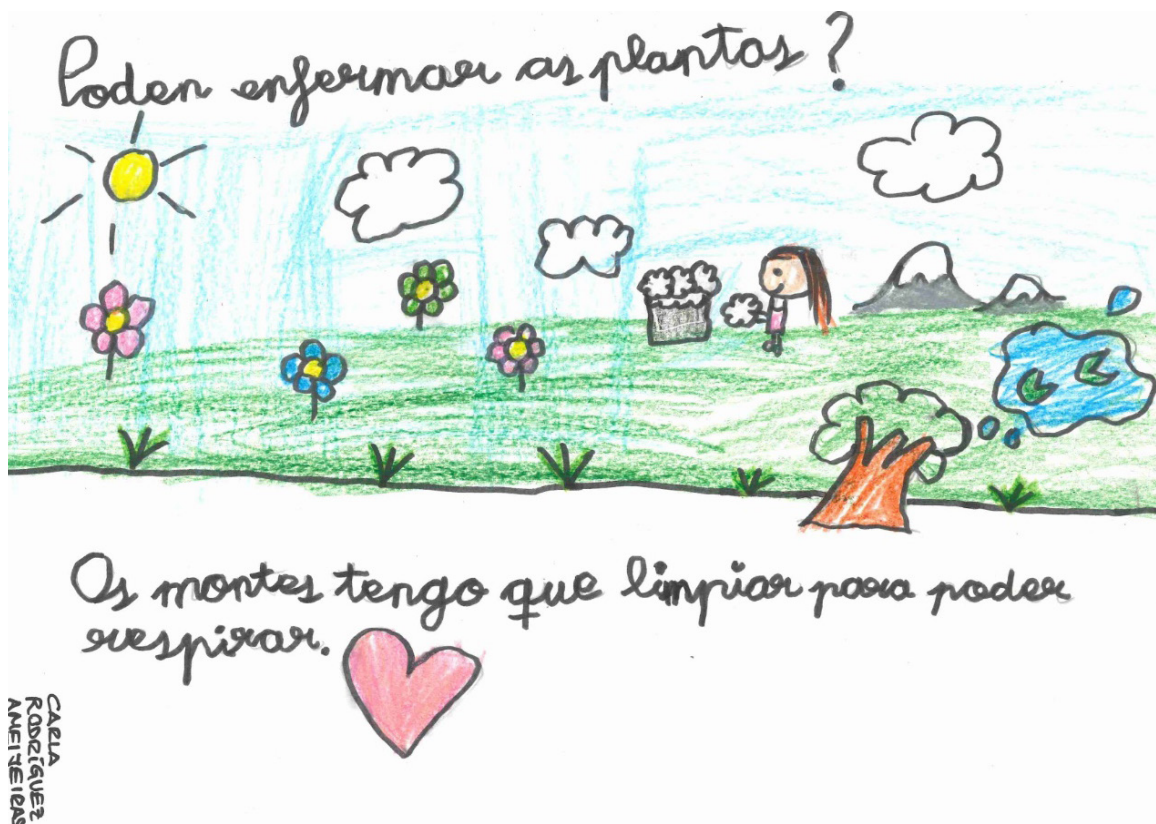 Poden enfermar as plantas?
Os montes tengo que limpiar para poder
respirar.
CARLA
RODRÍGUEZ
AMEIJEIRAS